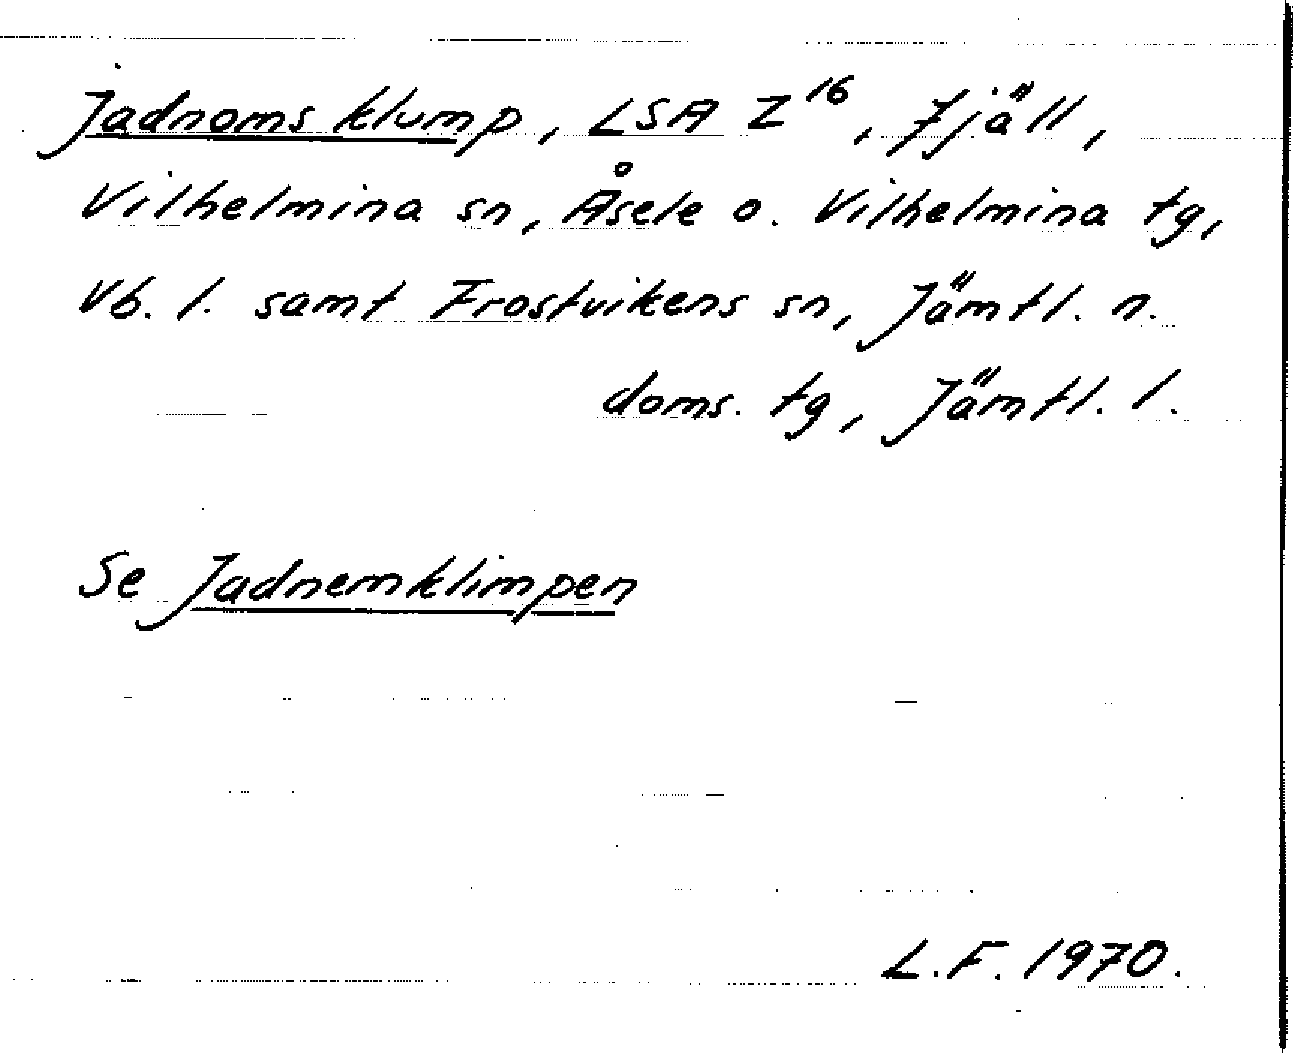 Jadnoms klump, LSA Z16, fjäll,
Vilhelmina sn, Åsele o. Vilhelmina tg,
Vb. l. samt Frostvikens sn, Jämtl. n.
doms. tg, Jämtl. l.
Se Jadnemklimpen
L.F. 1970.